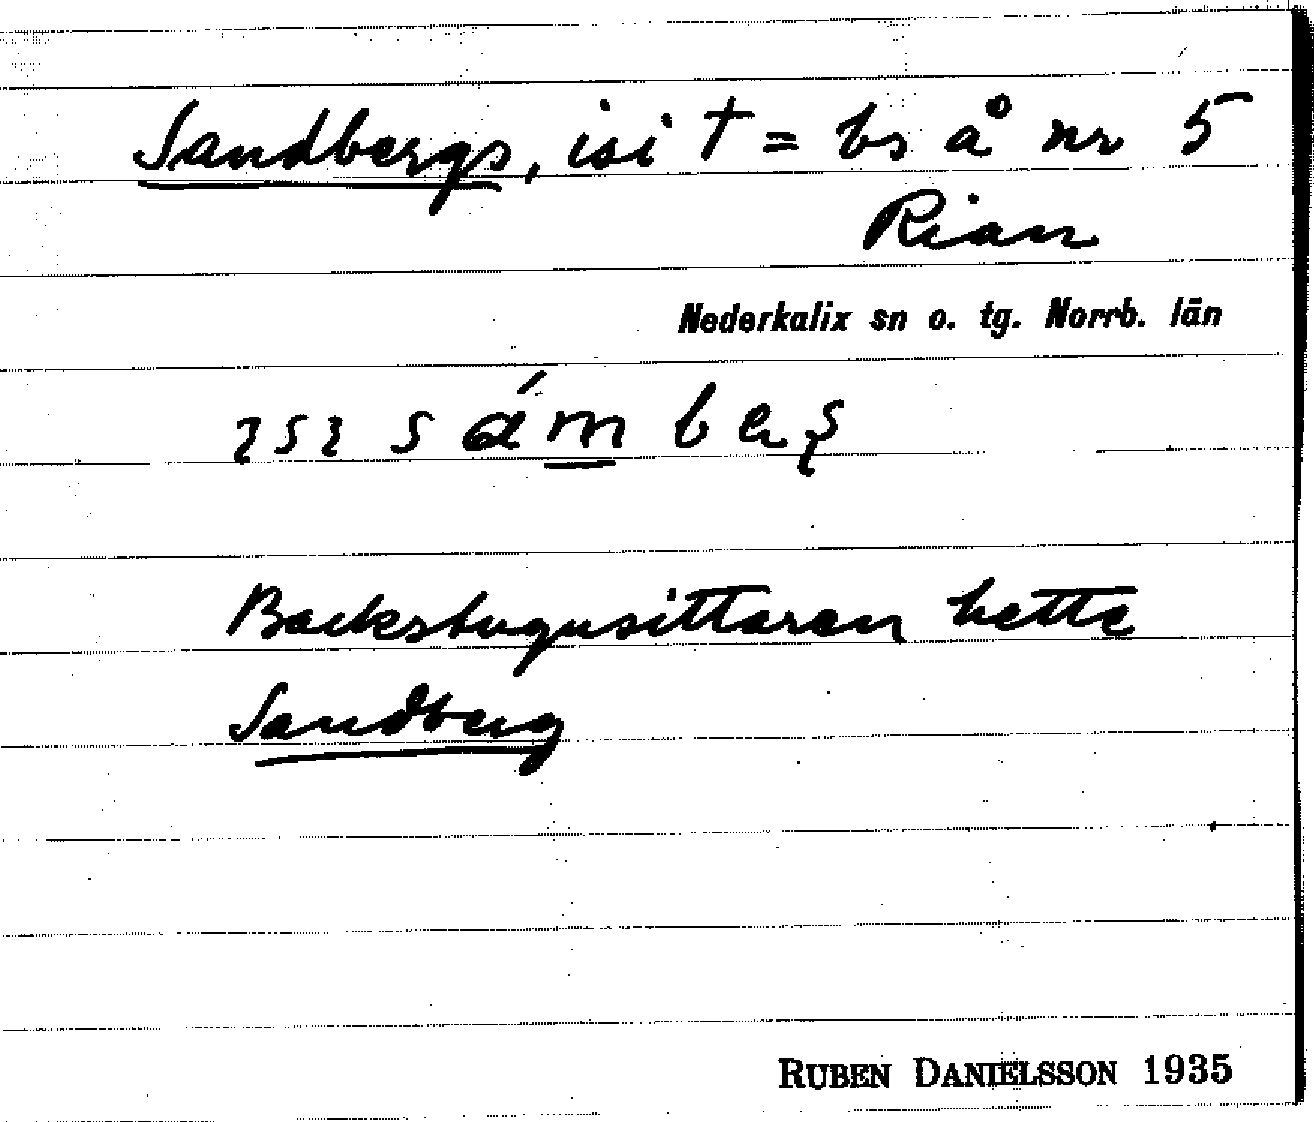 Sandbergs, isi † = bs å nr 5
Rian
Nederkalix sn o. tg. Norrb. län
Backstugusittaren hette
Sandberg
RUBEN DANIELSSON 1935